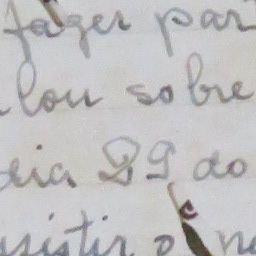 fazer par
lou sobre
dia 29 do
sistir o